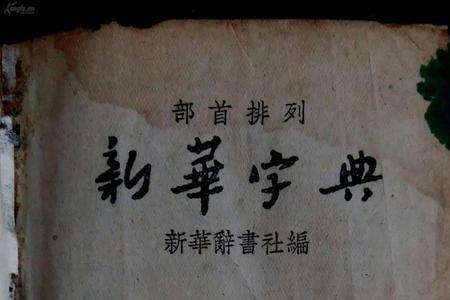 部首排列
新華字典
新華辭書社編